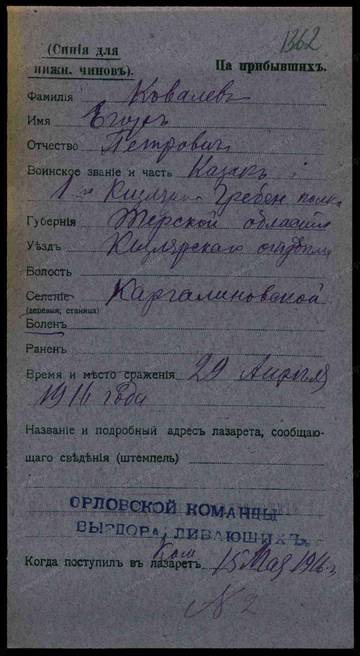 1362
(Синія для
нижн. чиновъ).
На прибывшихъ.
Фамилія Ковалевъ
Имя Егоръ
Отчество Петровичъ
Воинское званіе и часть Казакъ
1 Кизляро Гребен полка
Губернія Терской области
Уѣздъ Кизлярскаго отдѣла
Волость
Селеніе Каргалиновской
(деревня, станица)
Боленъ
Раненъ
Время и мѣсто сраженія 29 Апрѣля
1916 года
Названіе и подробный адресъ лазарета, сообщаю-
щаго свѣдѣнія (штемпель)
ОРЛОВСКОЙ КОМАНДЫ
ВЫЗДОРАВЛИВАЮЩИХЪ
Ком
Когда поступилъ въ лазаретъ 15 Мая 1916 г.
N 2